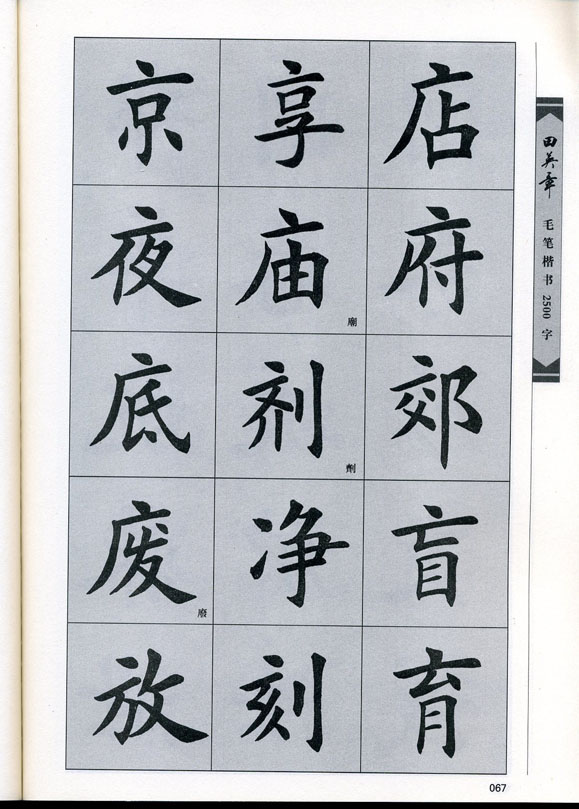 京 享 店
夜 庙 府
廟
底 剂 郊
劑
废 净 盲
廢
放 刻 育
田英章 毛笔楷书2500字
067